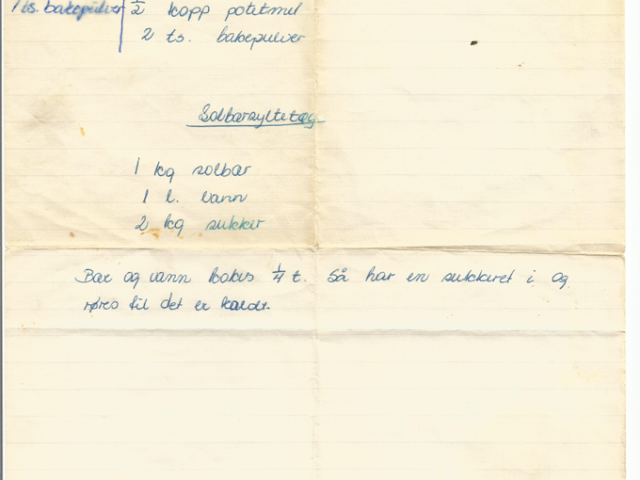 1 ts. bakepulver ½ kopp potetmel
2 ts. bakepulver
Solbærsyltetøy
1 kg solbær
1 l. vann
2 kg sukker
Bær og vann kokes ¼ t. Så har en sukkeret i og
røres til det er kaldt.